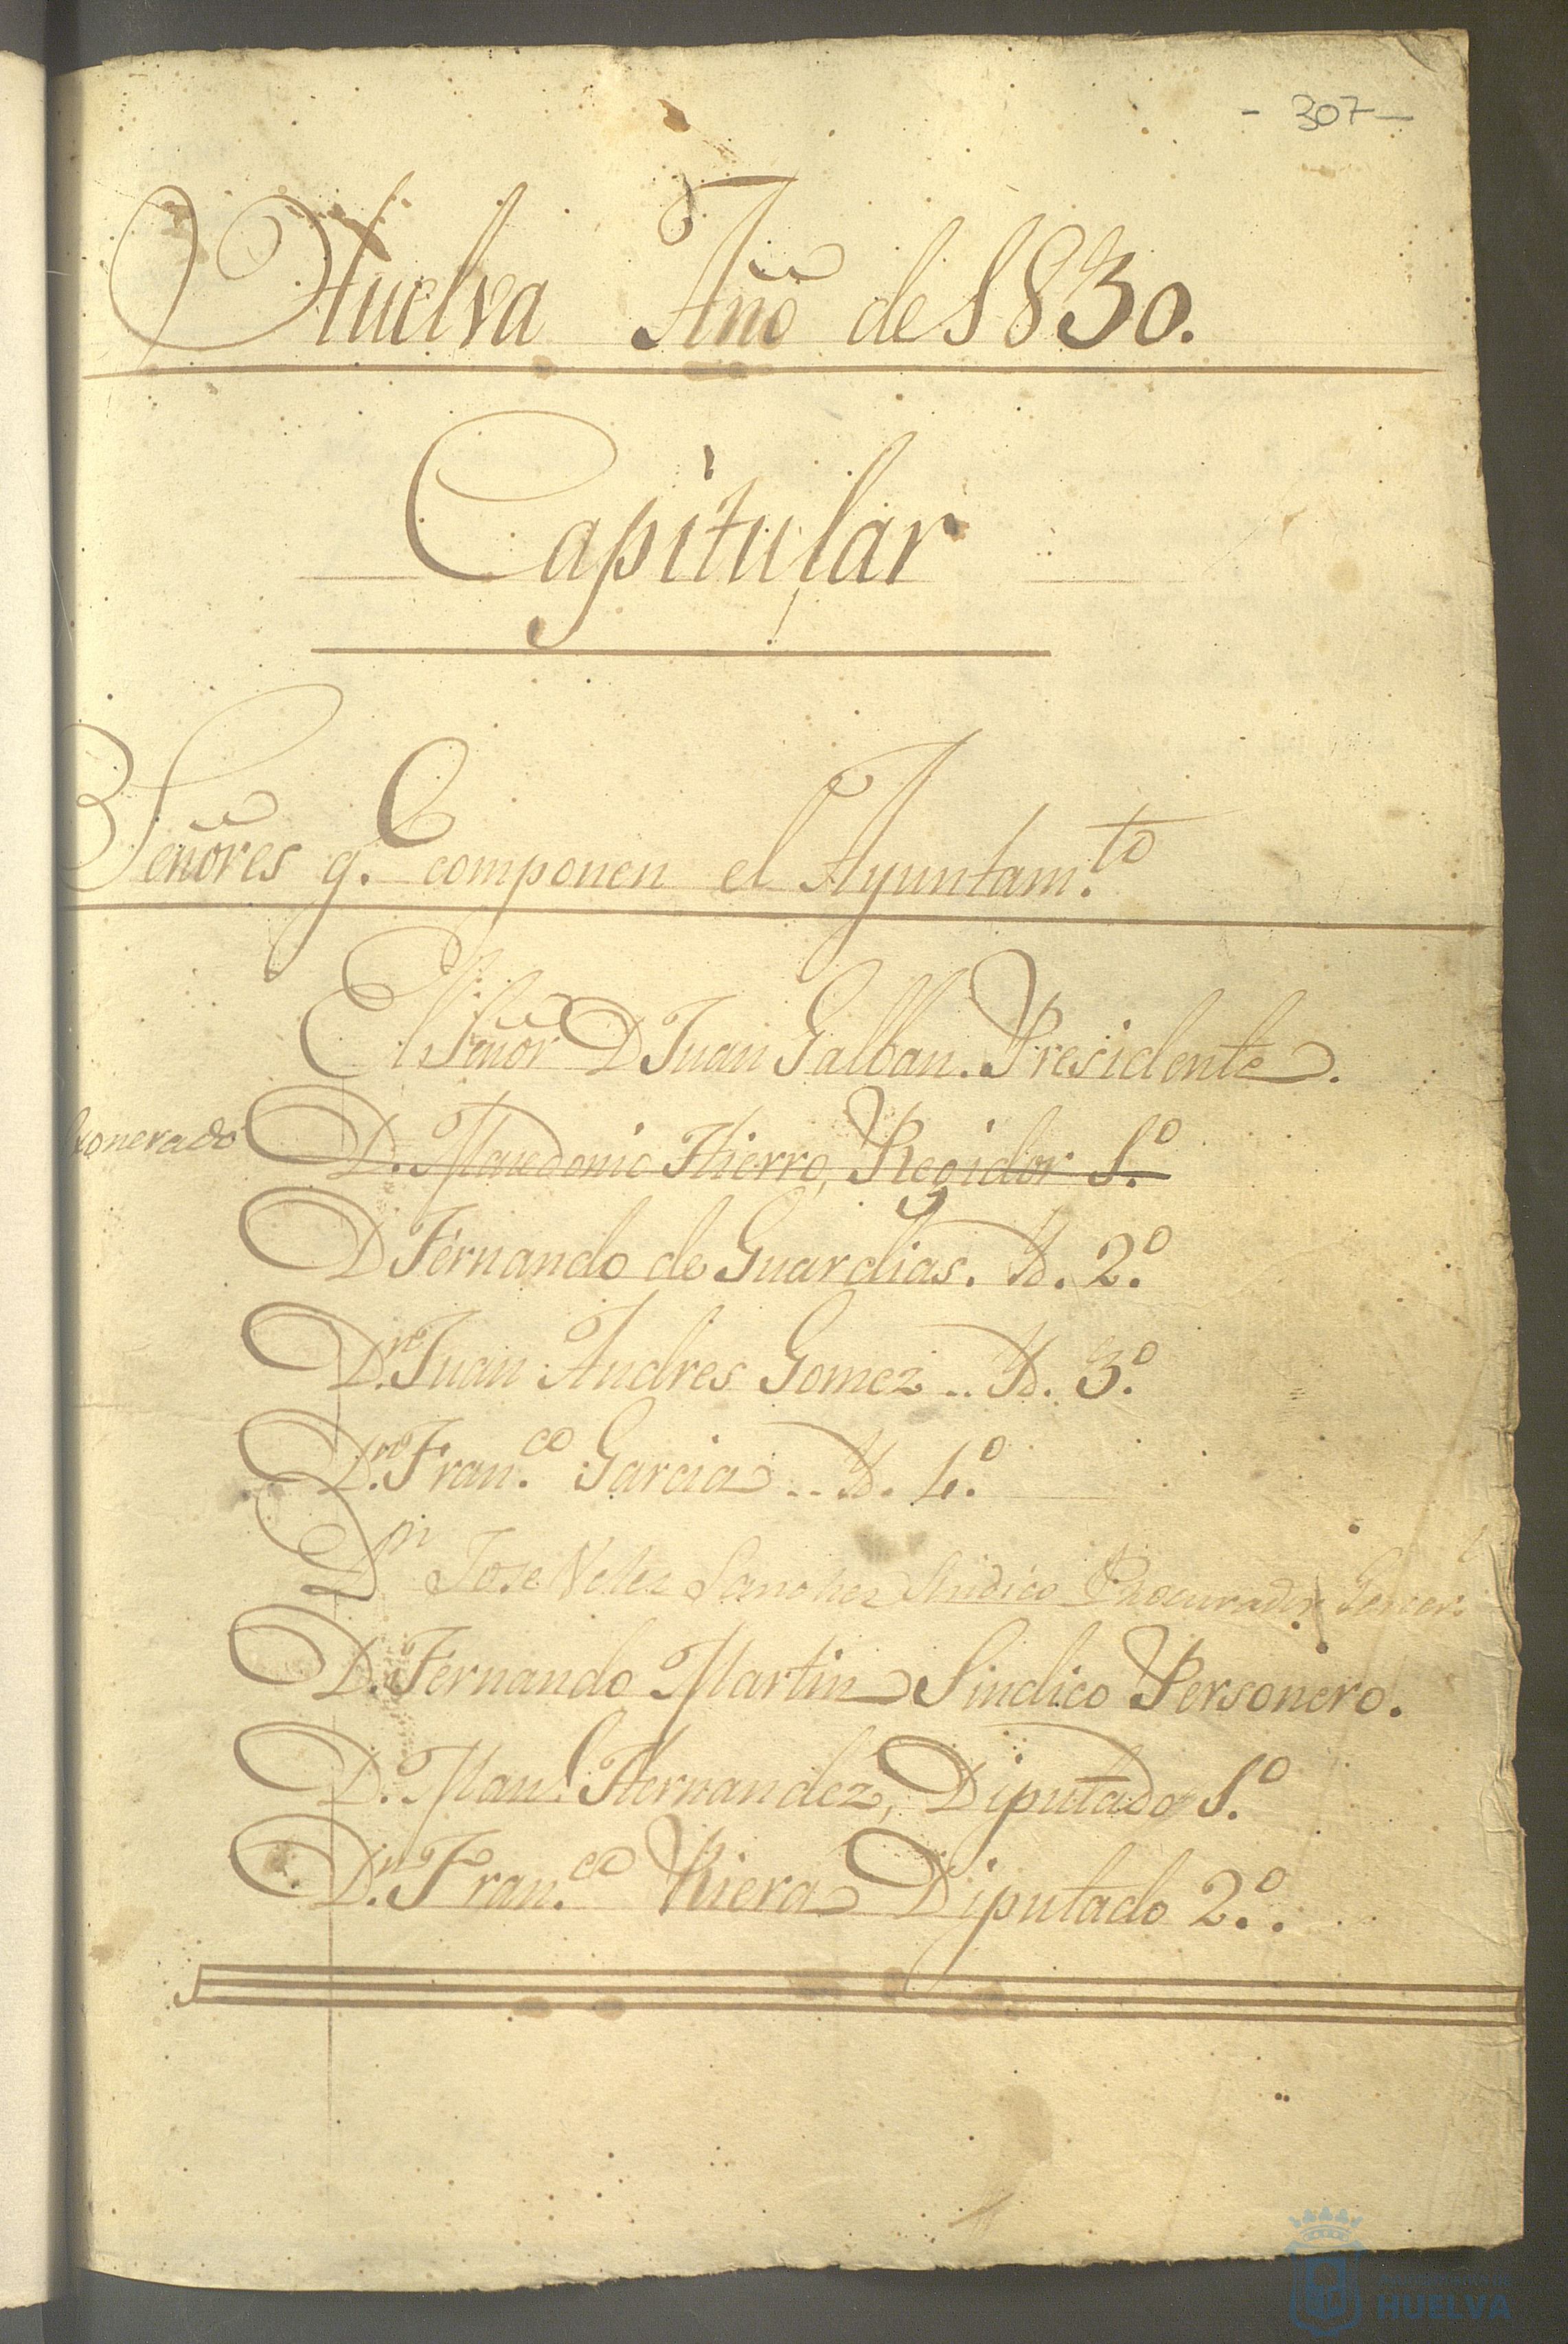 - 307 -
Huelva Año de 1830.
Capitular
Señores q. componen el Ayuntam.to
El Señor D Juan Galban. Presidente.
xonerado D. Macedonio Hierro, Regidor 1.º
D Fernando de Guardias. Yd. 2.º
D.n Juan Andres Gomez .. Yd. 3.º
D.n Fran.co Garcia .. Yd. 4.º
Dn Jose Velez Sanchez Sindico Procurador Gener.l
D. Fernando Martin Sindico Personero.
D. Man.l Hernandez, Diputado 1.º
D.n Fran.co Riera Diputado 2.º.
HUELVA